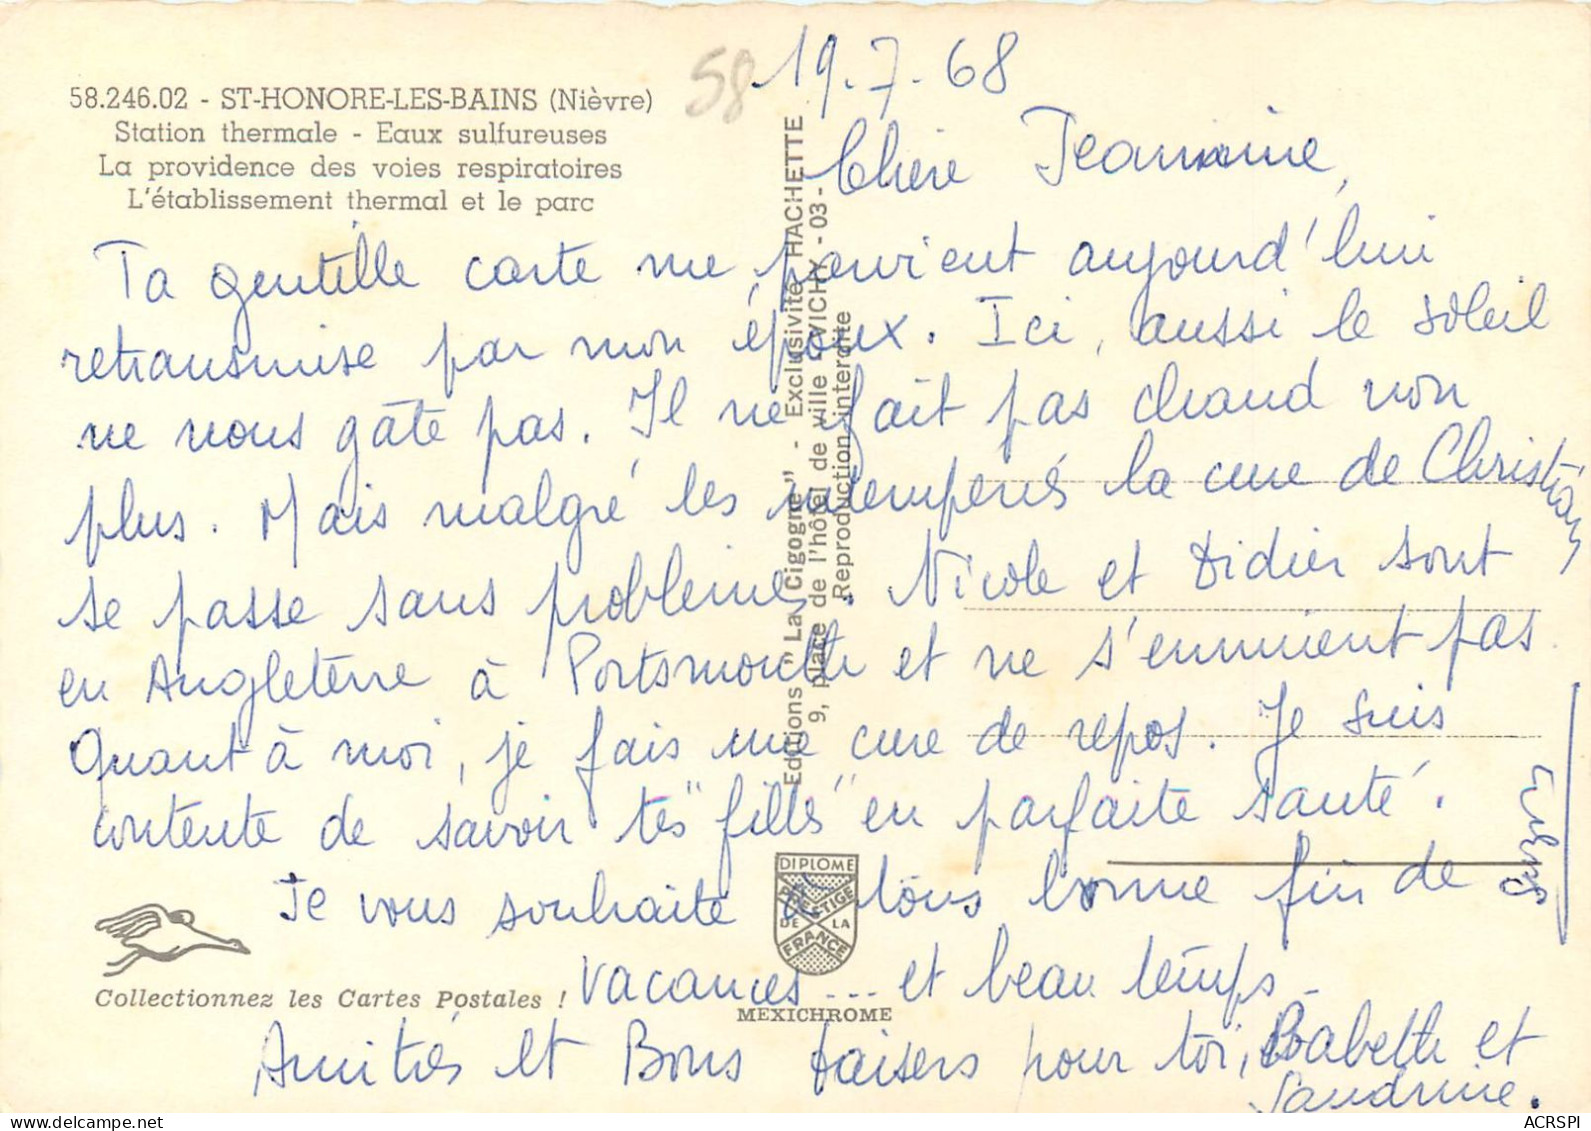 58.246.02 - ST-HONORE-LES-BAINS (Nièvre)
Station thermale - Eaux sulfureuses
La providence des voies respiratoires
L'établissement thermal et le parc
58
19.7.68
Chère Jeannine,
Ta gentille carte me parvient aujourd'hui
retransmise par mon époux. Ici, aussi le soleil
ne nous gâte pas. Il ne fait pas chaud non
plus. Mais malgré les intempéries la cure de Christian
se passe sans problème. Nicole et Didier sont
en Angleterre à Portsmouth et ne s'ennuient pas.
Quant à moi, je fais une cure de repos. Je suis
contente de savoir tes "filles" en parfaite santé.
Je vous souhaite à tous bonne fin de
vacances... et beau temps.
Amitiés et Bons baisers pour toi, Babeth et
Sandrine.
Editions "La Cigogne" - Exclusivité HACHETTE
9, place de l'hôtel de ville - VICHY - 03 -
Reproduction interdite
DIPLOME
PRESTIGE
DE LA
FRANCE
MEXICHROME
Collectionnez les Cartes Postales !
ACRSPI